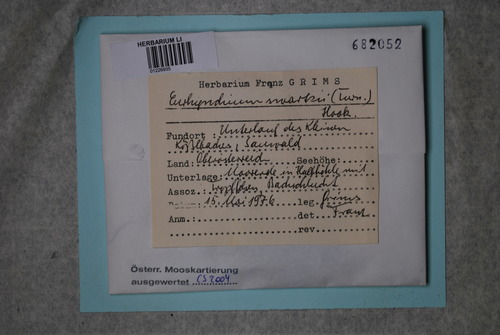 HERBARIUM LI
682052
Herbarium Franz GRIMS
Eurhynchium swartzii (Turn.)
Hook.
Fundort: Unterlauf des Kleinen
Kößlbaches, Sauwald
Land: Oberösterreich Seehöhe:
Unterlage: in Halbhöhle mit
Assoz.
15. Mai 1976 leg. Grims
Anm.: det. Franz
rev.
Österr. Mooskartierung
ausgewertet CS 2004